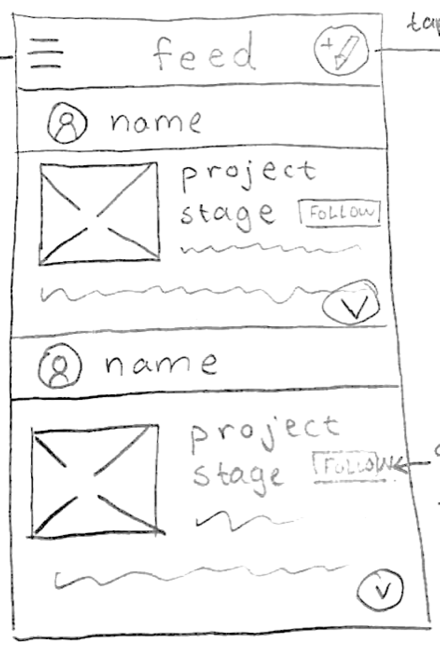 feed
tap
name
project
stage FOLLOW
name
project
stage FOLLOW